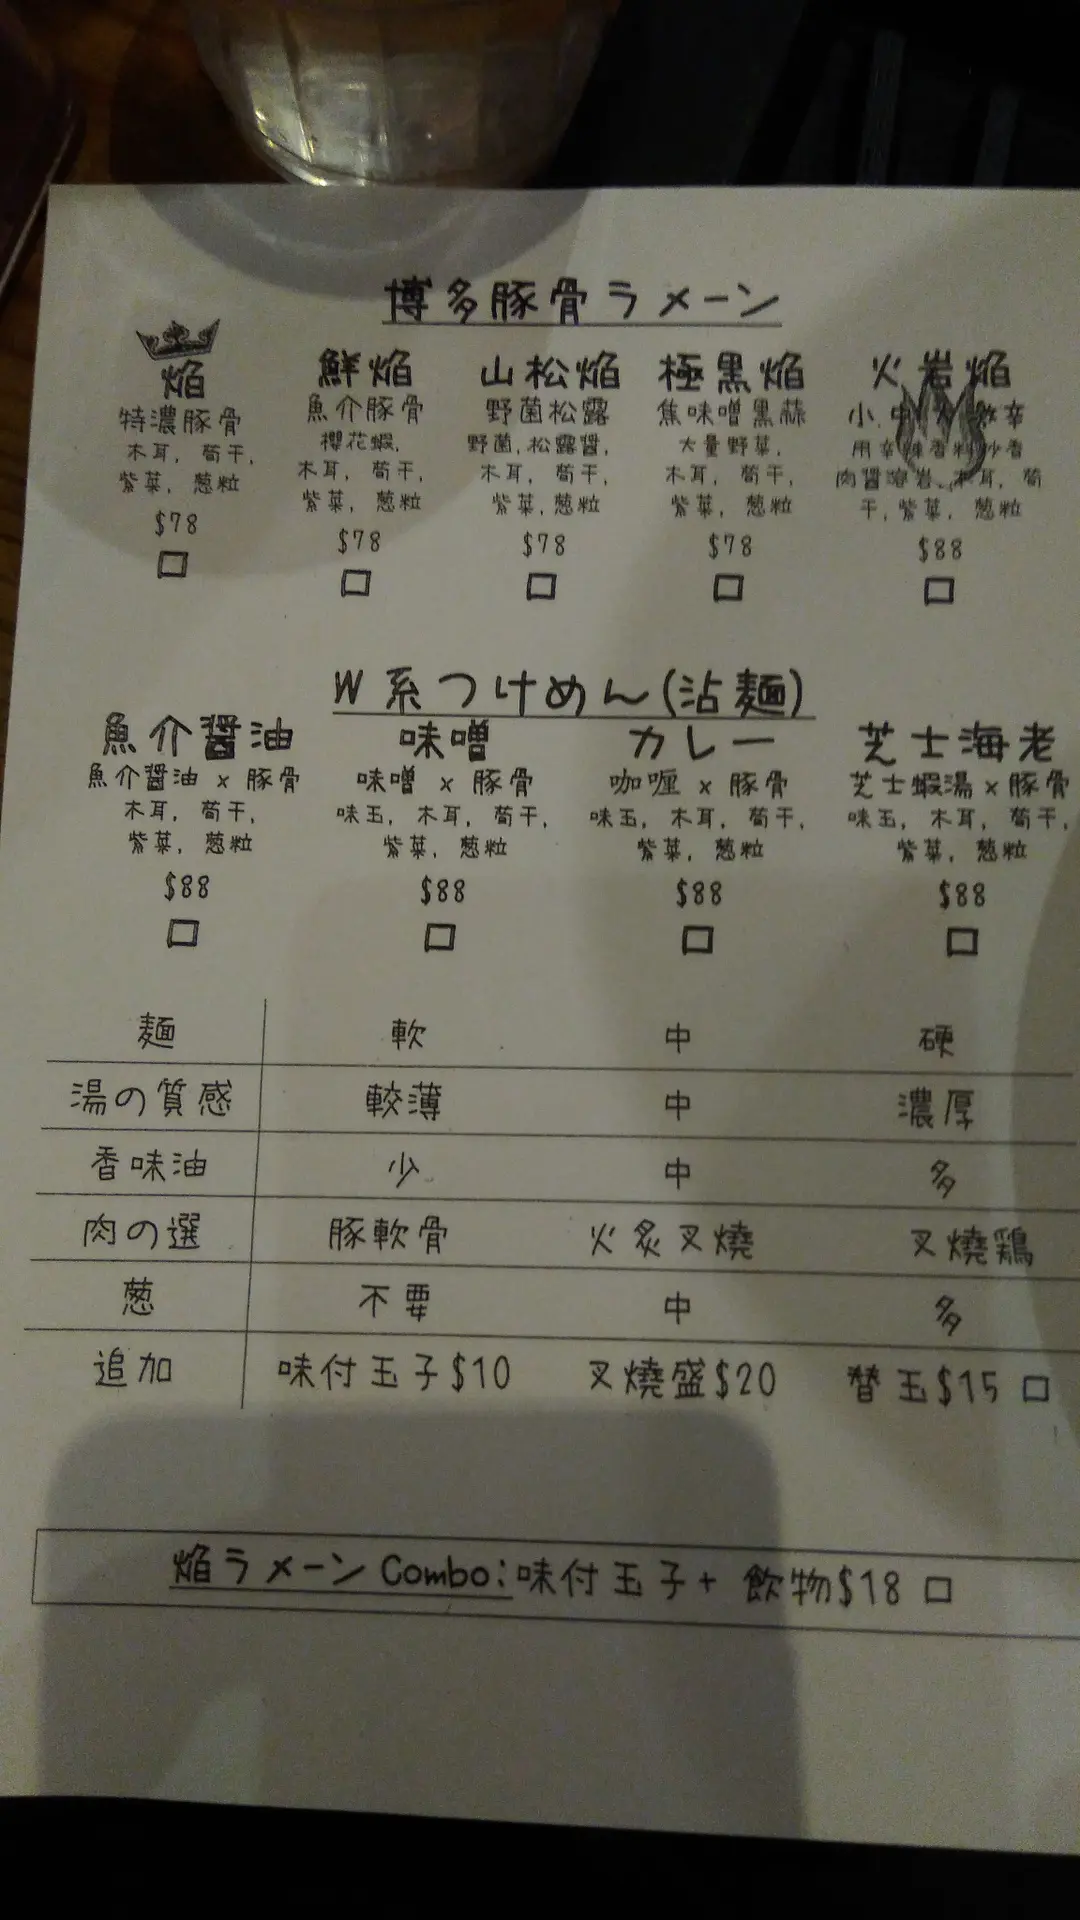 博多豚骨ラーメン
焔
特濃豚骨
木耳, 荀干,
紫菜, 葱粒
$78
鮮焔
魚介豚骨
櫻花蝦,
木耳, 荀干,
紫菜, 葱粒
$78
山松焔
野菌松露
野菌, 松露醤,
木耳, 荀干,
紫菜, 葱粒
$78
極黒焔
焦味噌黒蒜
大量野菜,
木耳, 荀干,
紫菜, 葱粒
$78
火岩焔
小, 中, 辛
用辛辣香料炒香
肉醤溶岩, 木耳, 荀
干, 紫菜, 葱粒
$88
W系つけめん(沾麺)
魚介醤油
魚介醤油 x 豚骨
木耳, 荀干,
紫菜, 葱粒
$88
味噌
味噌 x 豚骨
味玉, 木耳, 荀干,
紫菜, 葱粒
$88
カレー
咖喱 x 豚骨
味玉, 木耳, 荀干,
紫菜, 葱粒
$88
芝士海老
芝士蝦湯 x 豚骨
味玉, 木耳, 荀干,
紫菜, 葱粒
$88
麺 軟 中 硬
湯の質感 較薄 中 濃厚
香味油 少 中 多
肉の選 豚軟骨 火炙叉燒 叉燒鶏
葱 不要 中 多
追加 味付玉子$10 叉燒盛$20 替玉$15
焔ラメーン Combo:味付玉子+ 飲物$18